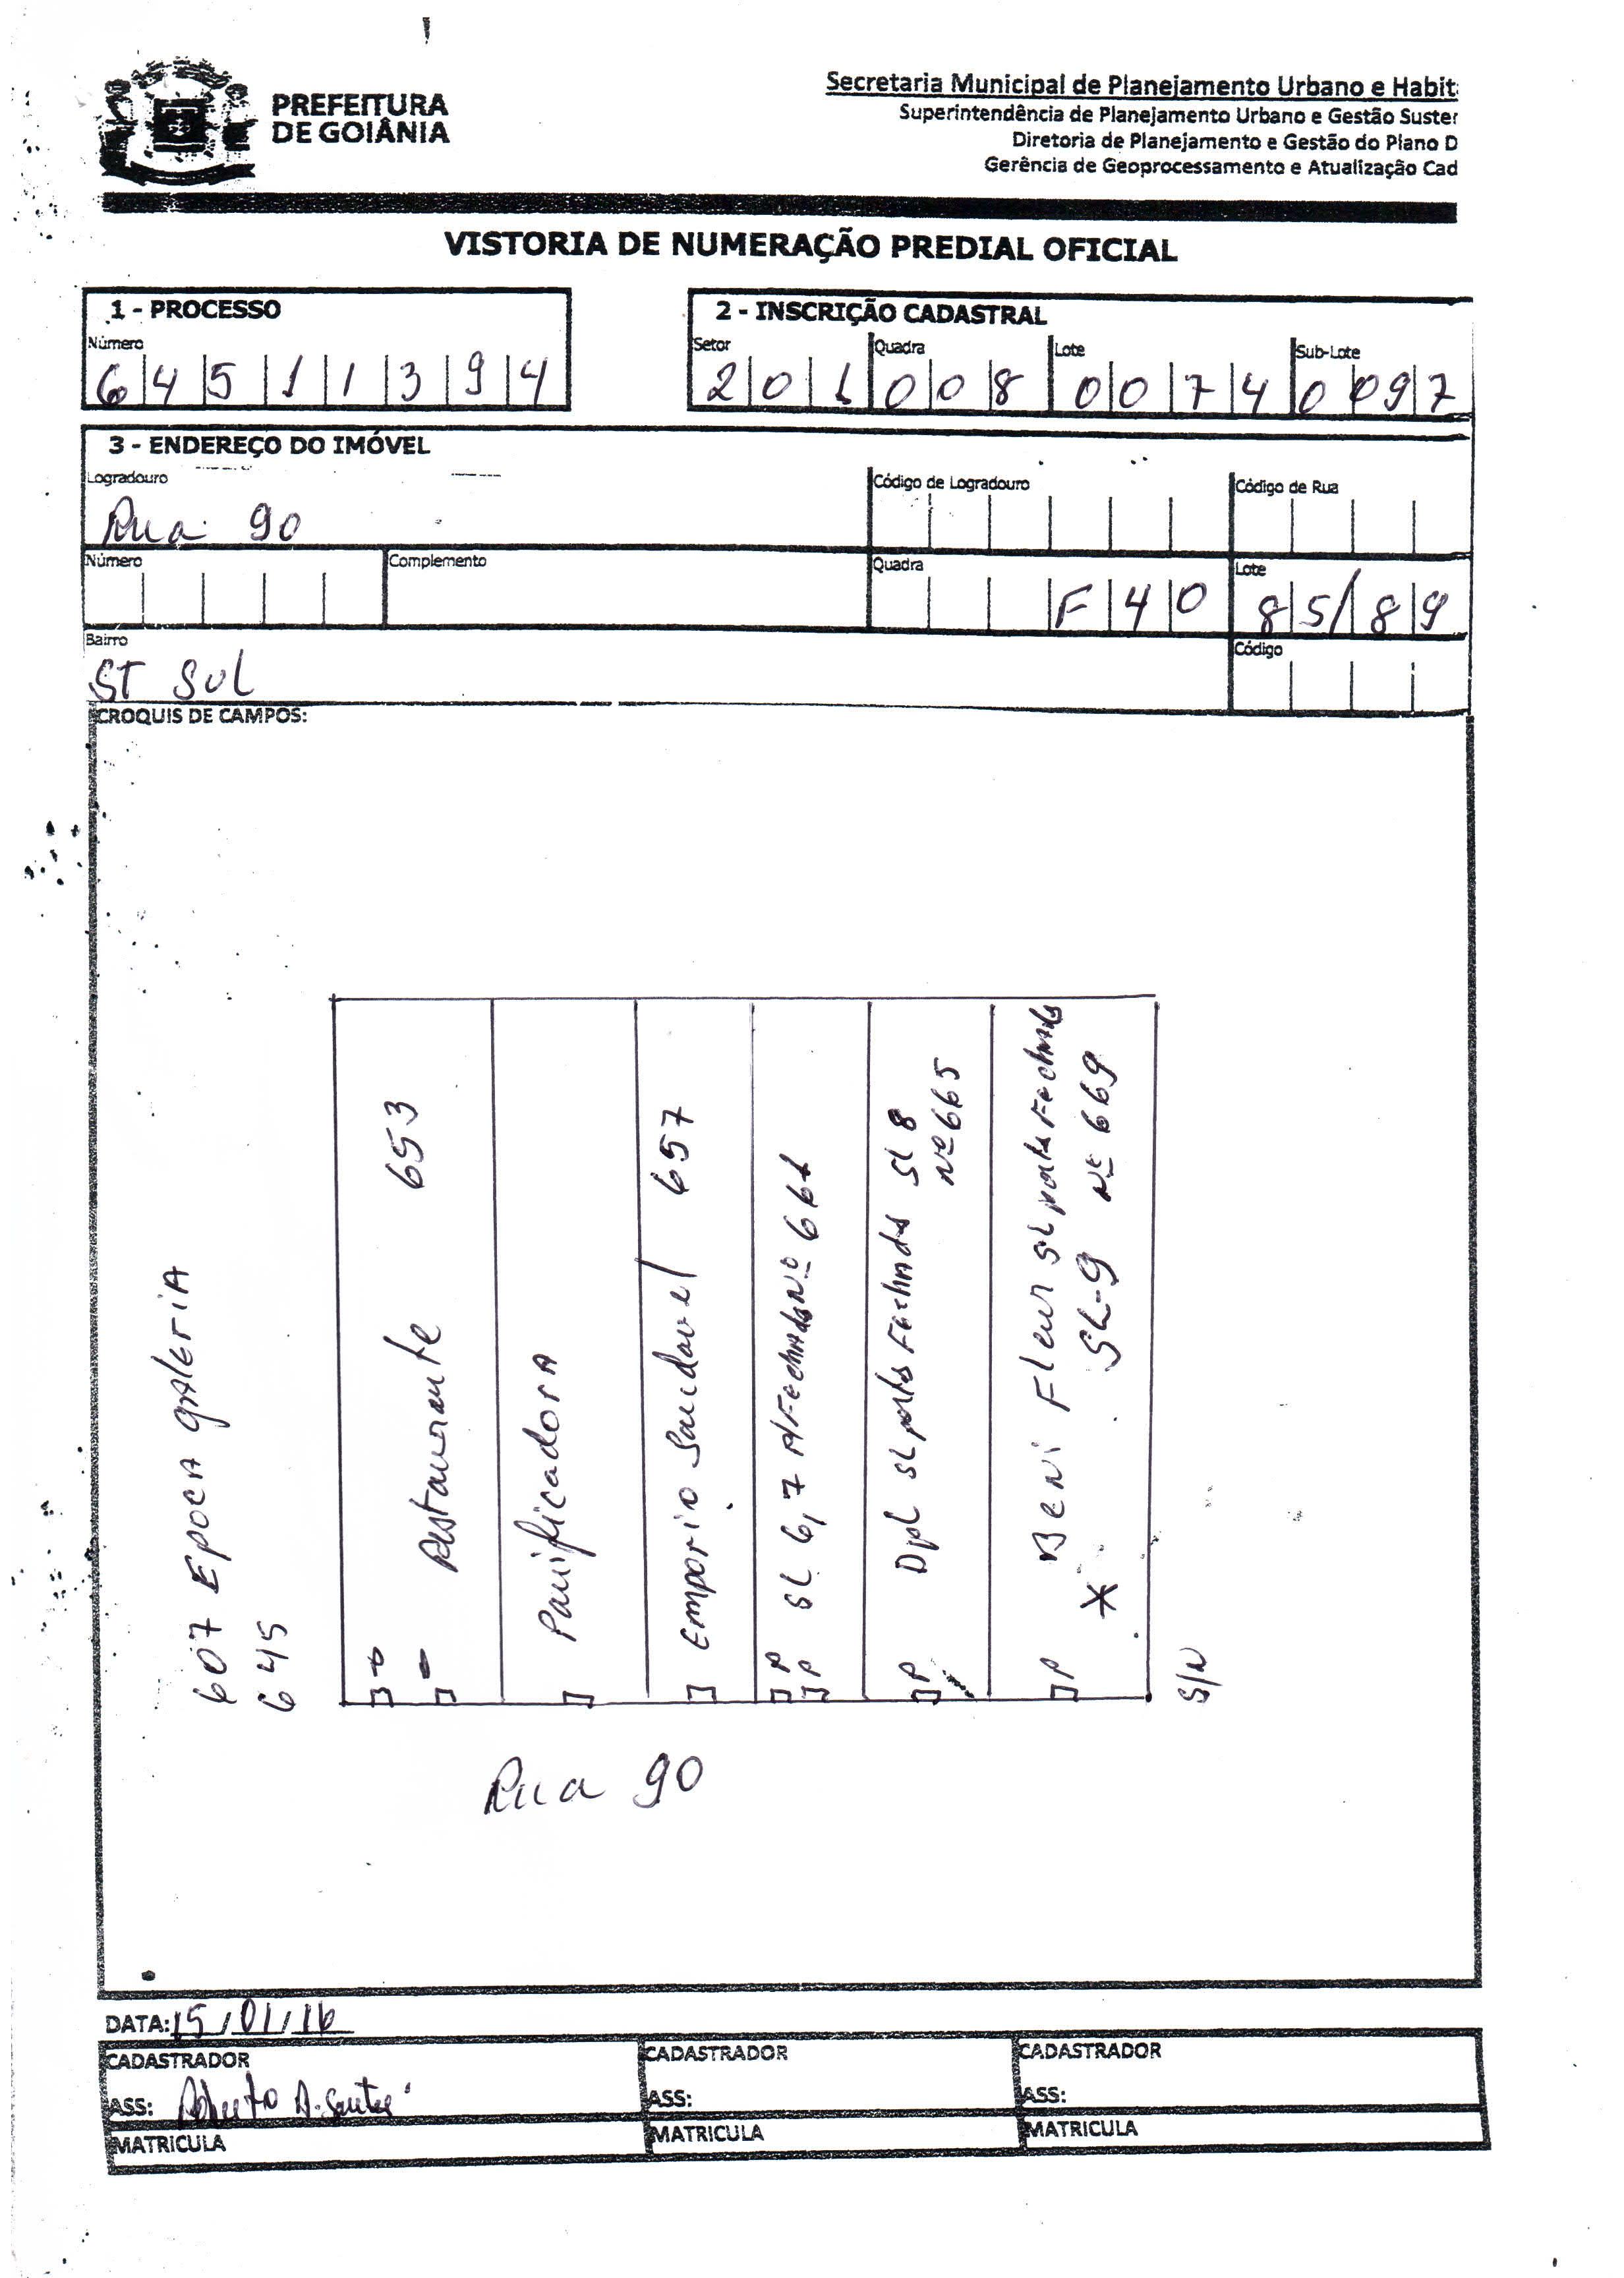 PREFEITURA
DE GOIÂNIA
Secretaria Municipal de Planejamento Urbano e Habit
Superintendência de Planejamento Urbano e Gestão Suster
Diretoria de Planejamento e Gestão do Plano D
Gerência de Geoprocessamento e Atualização Cad
VISTORIA DE NUMERAÇÃO PREDIAL OFICIAL
1 - PROCESSO
Número
6 4 5 1 1 3 9 4
2 - INSCRIÇÃO CADASTRAL
Setor Quadra Lote Sub-Lote
2 0 1 0 0 8 0 0 7 4 0 0 9 7
3 - ENDEREÇO DO IMÓVEL
Logradouro Código de Logradouro Código de Rua
Rua 90
Número Complemento Quadra Lote
F 4 0 8 5 / 8 9
Bairro Código
ST SUL
CROQUIS DE CAMPOS:
607 Epoca galeria
645
Restaurante 653
Panificadora
Emporio Saudavel 657
SL 6, 7 P/Fechada Nº 661
Dpl SL porta Fechada SL 8
Nº 665
Beni Fleur SL porta Fechada
* SL-9 Nº 669
S/N
Rua 90
DATA: 15/01/16
CADASTRADOR CADASTRADOR CADASTRADOR
ASS: Roberto A. Santos ASS: ASS:
MATRICULA MATRICULA MATRICULA